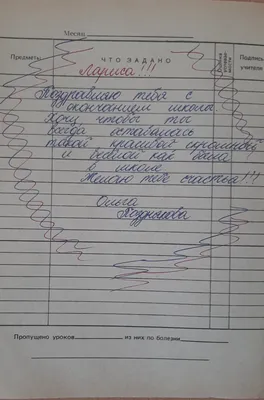 Месяц
Предметы
ЧТО ЗАДАНО
Подпись учителя
Лариса!!!
Поздравляю тебя с
окончанием школы.
Хочу чтобы ты
всегда оставалась
такой красивой скромной
и весёлой как была
в школе
Желаю тебе счастья!!!
Ольга
Позднякова
Пропущено уроков из них по болезни